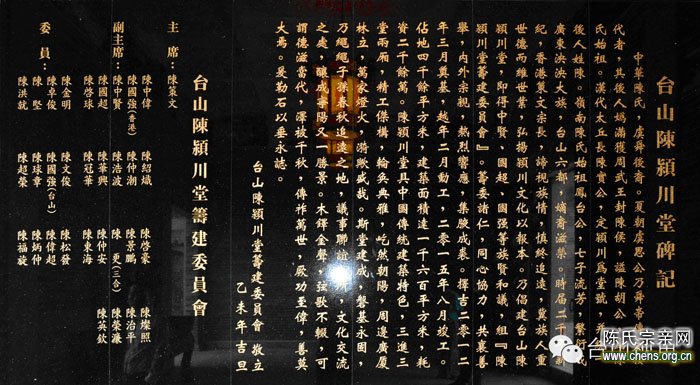 台山陳潁川堂碑記
中華陳氏，虞舜後裔。夏朝虞思公乃舜帝
代者，其後人媯滿獲周武王封陳侯，諡陳胡公，
氏始祖。漢代太丘長陳寔公，定潁川爲堂號，
後人姓陳。嶺南陳氏始祖鳳台公，七子流芳，繁衍成
廣東泱泱大族，台山六都，嫡裔滋榮。時届二千
紀，香港簋文宗長，諦視族情，慎終追遠，冀族人重
世德而維世業，弘揚潁川文化以報本。乃倡建台山陳
潁川堂，即得中賢、國超、國强等族賢和議，組『陳
潁川堂籌建委員會』。籌委諸仁，同心協力，共襄善
舉，內外宗親，熱烈響應，集腋成裘。擇吉二〇一二
年三月奠基，越年二月動工，二〇一五年八月竣工。
佔地四千餘平方米，建築面積達一千六百平方米，耗
資二千餘萬。陳潁川堂具中國傳統建築特色，三進三
堂兩廂，精工傑構，輪奐典雅，屹然朝陽，周邊廣厦
林立，萬家燈火，漪歟盛哉。斯堂建成，磐基永固，
乃繩繩子孫春秋追遠之地，議事聯誼之所，文化交流
之處，釀成華陽又一勝景。木鐸金聲，弦歌不輟，可
謂德滋當代，澤被千秋，傳祚萬世，厥功至偉，善莫
大焉。爰勒石以垂永誌。
台山陳潁川堂籌建委員會 敬立
乙未年吉旦
台山陳潁川堂籌建委員會
主席：陳簋文
副主席：陳中偉 陳紹熾 陳啓豪 陳燦照
陳國強(香港) 陳仲潮 陳景鵬 陳治平
陳中賢 陳浩波 陳更(三合) 陳榮濂
陳國超 陳華興 陳仲安 陳英欽
陳啓球 陳冠華 陳東海
委員：陳金明 陳文俊 陳松發
陳卓俊 陳國強(台山) 陳偉超
陳堅 陳球章 陳炳仲
陳洪就 陳超榮 陳福旋
陈氏宗亲网
www.chens.org.cn